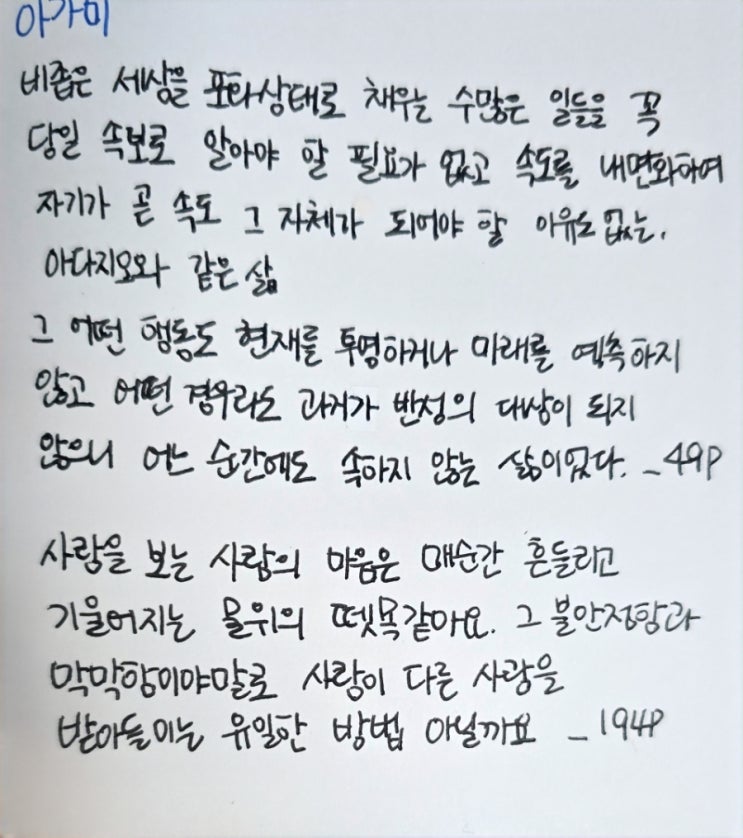 아가미
비좁은 세상을 포화상태로 채우는 수많은 일들을 꼭
당일 속보로 알아야 할 필요가 없고 속도를 내면화하여
자기가 곧 속도 그 자체가 되어야 할 이유도 없는,
아다지오와 같은 삶
그 어떤 행동도 현재를 투영하거나 미래를 예측하지
않고 어떤 경우라도 과거가 반성의 대상이 되지
않으니 어느 순간에도 속하지 않는 삶이었다. _49P
사람을 보는 사람의 마음은 매순간 흔들리고
기울어지는 물위의 뗏목같아요. 그 불안정함과
막막함이야말로 사람이 다른 사람을
받아들이는 유일한 방법 아닐까요 _194P